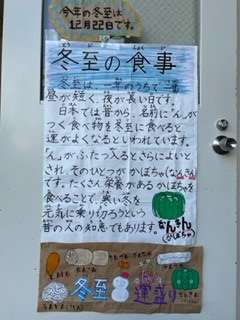 今年の冬至は
12月22日です。
とうじ しょくじ
冬至の食事
冬至は、一年のうちで一番
昼が短く、夜が長い日です。
日本では昔から、名前に「ん」が
つく食べ物を冬至に食べると
運がよくなるといわれています。
「ん」がふたつ入るとさらによいと
され、そのひとつがかぼちゃ(なんきん)
です。たくさん栄養があるかぼちゃを
食べることで、寒い冬を
元気に乗り切ろうという
昔の人の知恵でもあります。
なんきん
(かぼちゃ)
冬至
運盛り